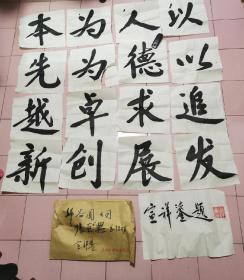 以人为本
以德为先
追求卓越
发展创新
宣祥鎏题